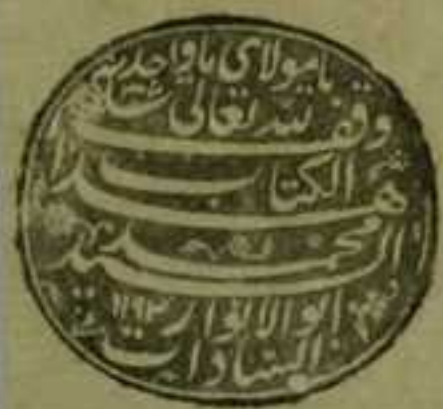 يا مولاي يا واحد
وقف لله تعالى
الكتاب
هذا
السيد محمد
ابو الانوار ١١٩٣
السادات